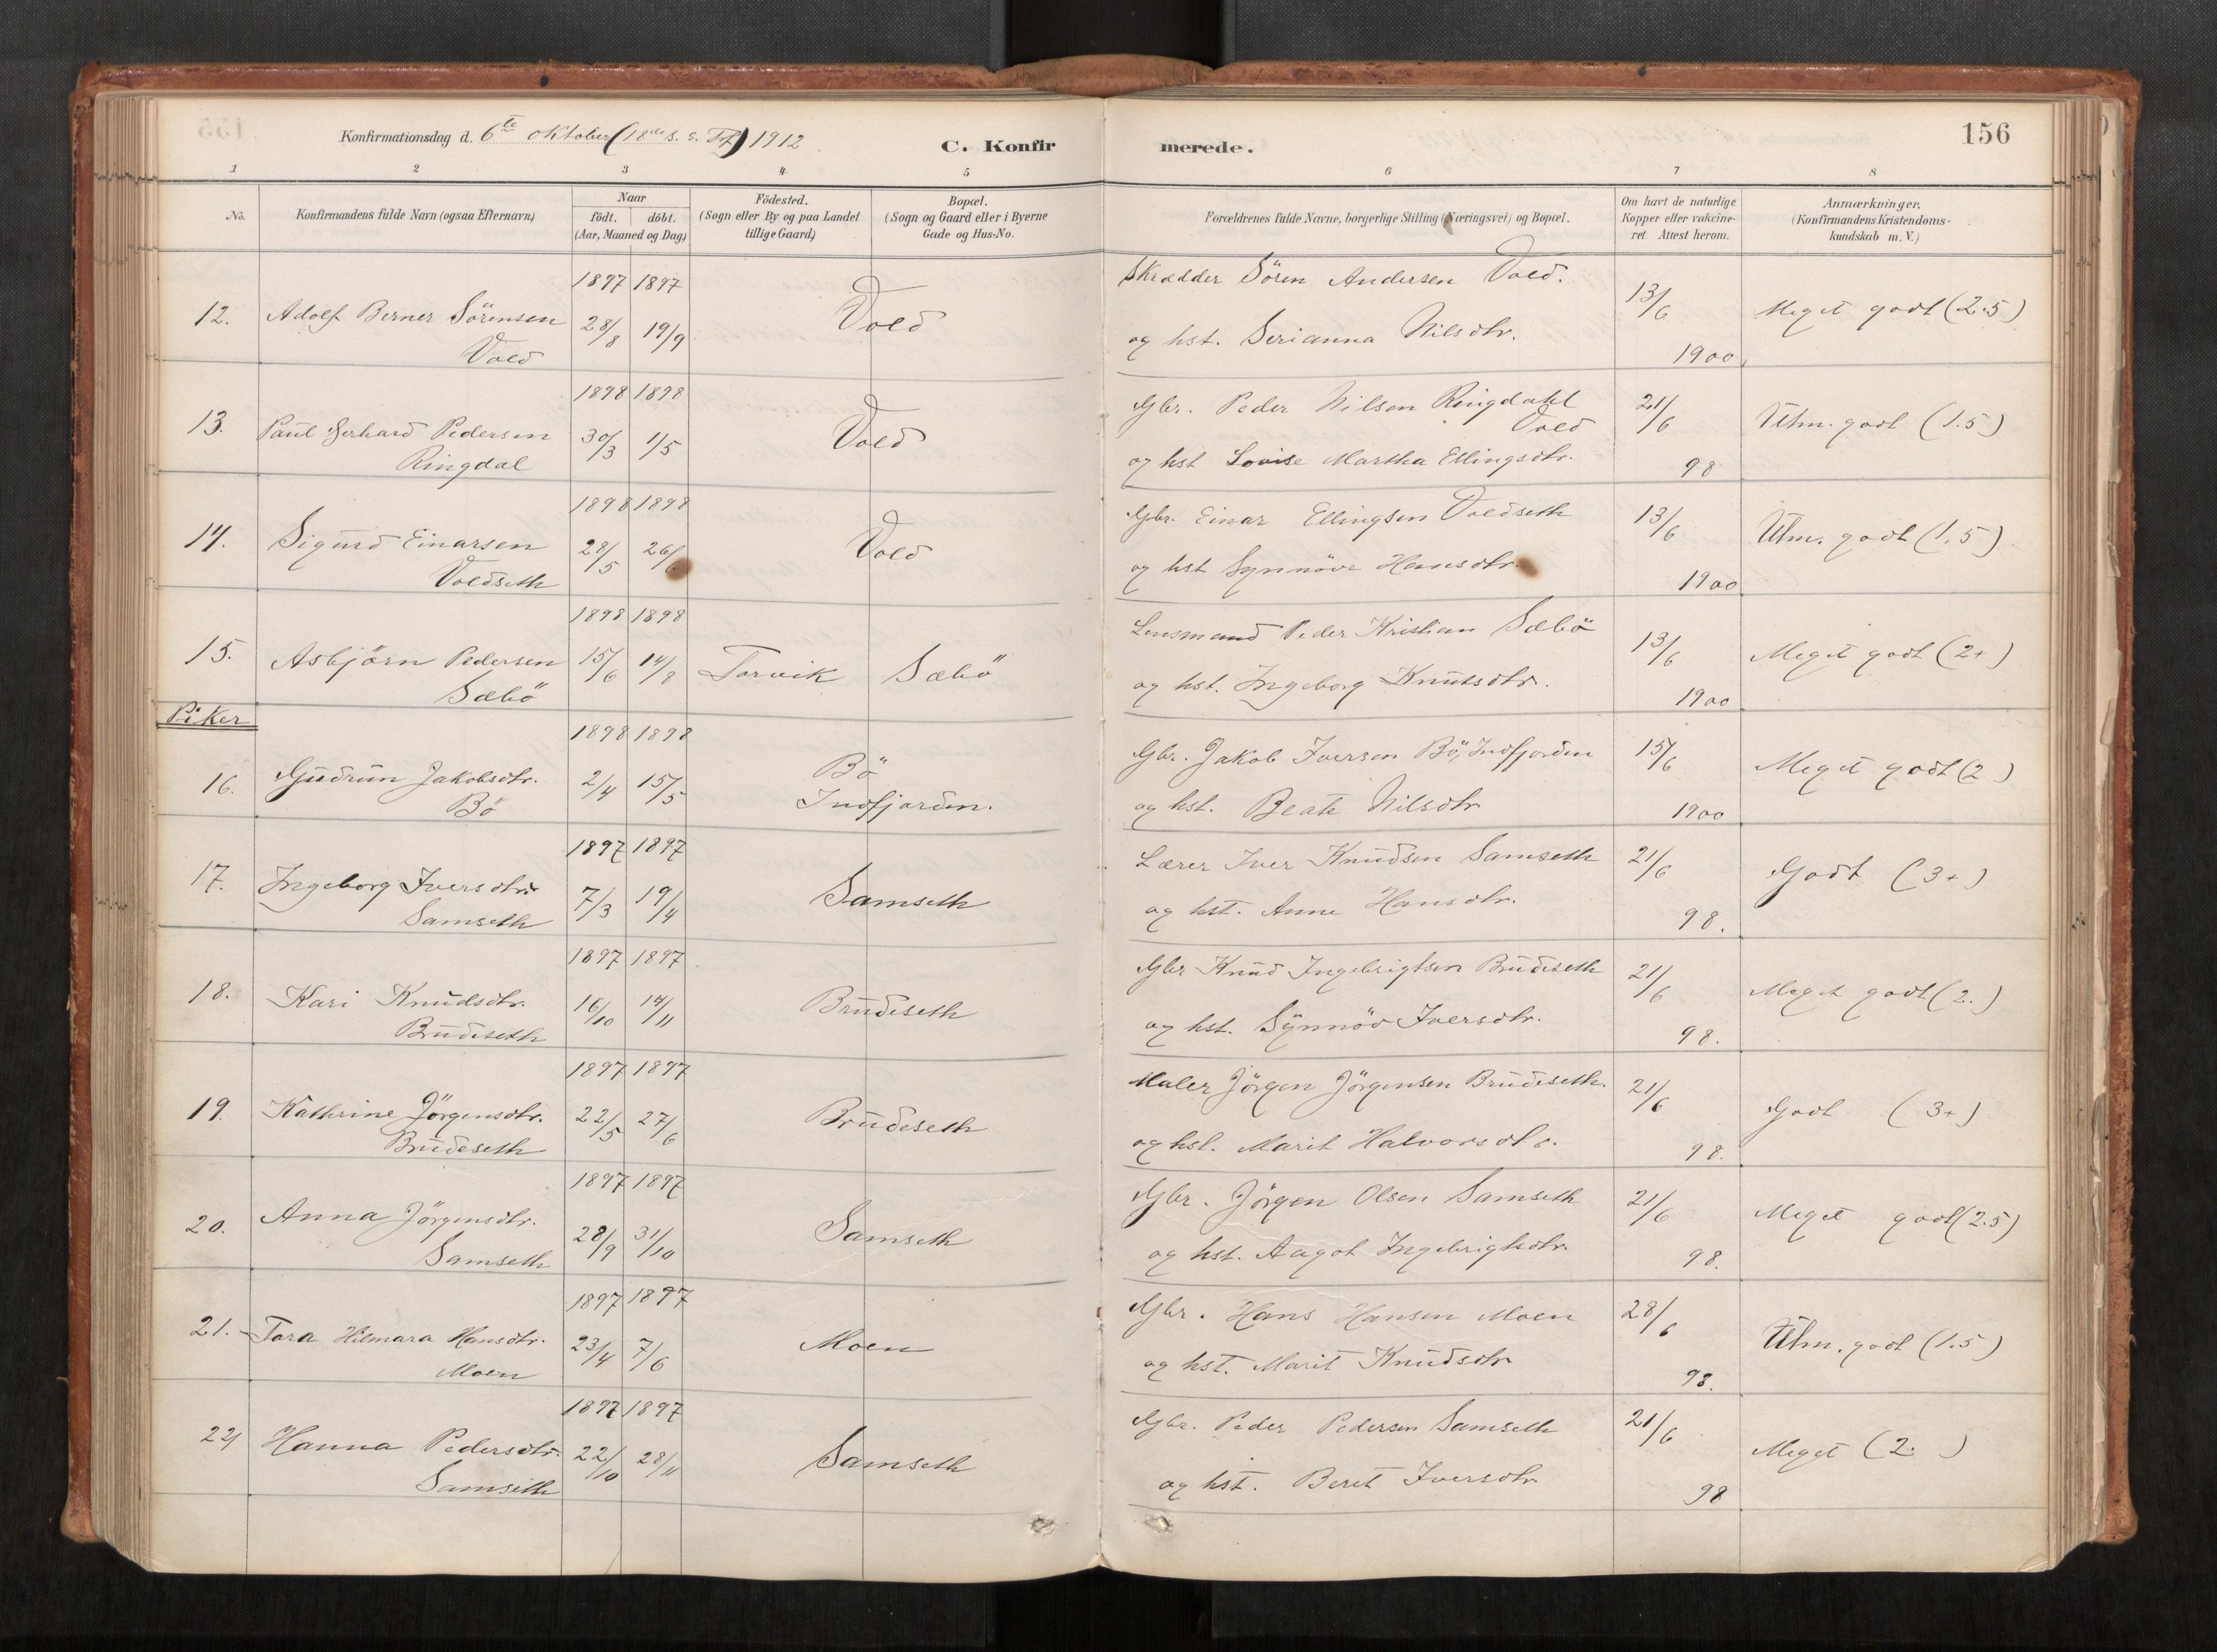 Konfirmationsdag d. 6te oktober (18de S. e. Tref) 1912
C. Konfirmerede.
156
1 2 3 4 5 6 7 8
No.
Konfirmandens fulde Navn (ogsaa Efternavn)
Naar
födt. döbt.
(Aar, Maaned og Dag)
Födested.
(Sogn eller By og paa Landet
tillige Gaard)
Bopæl.
(Sogn og Gaard eller i Byerne
Gade og Hus-No.
Forældrenes fulde Navne, borgerlige Stilling (Næringsvei) og Bopæl.
Om havt de naturlige
Kopper eller vakcine-
ret. Attest herom.
Anmærkninger.
(Konfirmandens Kristendoms-
kundskab m. V.)
1897 1897 Skrædder Sören Andersen Vold.
12. Adolf Berner Sörensen 28/8 19/9 Vold 13/6 Meget godt (2.5)
Vold og hst. Serianna Nilsdtr. 1900
1898 1898 Gbr. Peder Nilsen Ringdahl
13. Paul Gerhard Pedersen 30/3 1/5 Vold Vold 21/6 Utm. godt (1.5)
Ringdal og hst Lovise Martha Ellingsdtr. 98
1898 1898 Gbr. Einar Ellingsen Voldseth
14. Sigurd Einarsen 28/5 26/6 Vold 13/6 Utm. godt (1.5)
Voldseth og hst Synnöve Hansdtr. 1900
1898 1898 Lensmand Peder Kristian Sæbö
15. Asbjörn Pedersen 15/6 14/8 Torvik Sæbö 13/6 Meget godt (2+)
Sæbö og hst. Ingeborg Knutsdtr. 1900
Piker
1898 1898 Gbr. Jakob Iversen Bö, Indfjorden
16. Gudrun Jakobsdtr. 2/4 15/5 Bö 15/6 Meget godt (2)
Bö Indfjorden. og hst. Beate Nilsdtr 1900
1897 1897 Lærer Iver Knudsen Samseth
17. Ingeborg Iversdtr. 7/3 19/4 Samseth 21/6 Godt (3+)
Samseth og hst. Anne Hansdtr. 98.
1897 1897 Gbr Knud Ingebrigtsen Brudeseth
18. Kari Knudsdtr. 16/10 14/11 Brudeseth 21/6 Meget godt (2.)
Brudeseth og hst. Synnöv Iversdtr. 98.
1897 1897 Maler Jörgen Jörgensen Brudeseth.
19. Kathrine Jörgensdtr. 22/5 27/6 Brudeseth 21/6 Godt (3+)
Brudeseth og hst. Marit Halvorsdtr. 98.
1897 1897 Gbr. Jörgen Olsen Samseth
20. Anna Jörgensdtr. 28/9 31/10 Samseth 21/6 Meget godt (2.5)
Samseth og hst. Aagot Ingebrigtsdtr. 98.
1897 1897 Gbr. Hans Hansen Moen
21. Tora Hilmara Hansdtr. 23/4 7/6 Moen 28/6 Utm. godt (1.5)
Moen og hst. Marit Knudsdtr 98.
1897 1897 Gbr. Peder Pedersen Samseth
22 Hanna Pedersdtr. 22/10 28/11 Samseth 21/6 Meget (2. )
Samseth og hst. Beret Iversdtr 98